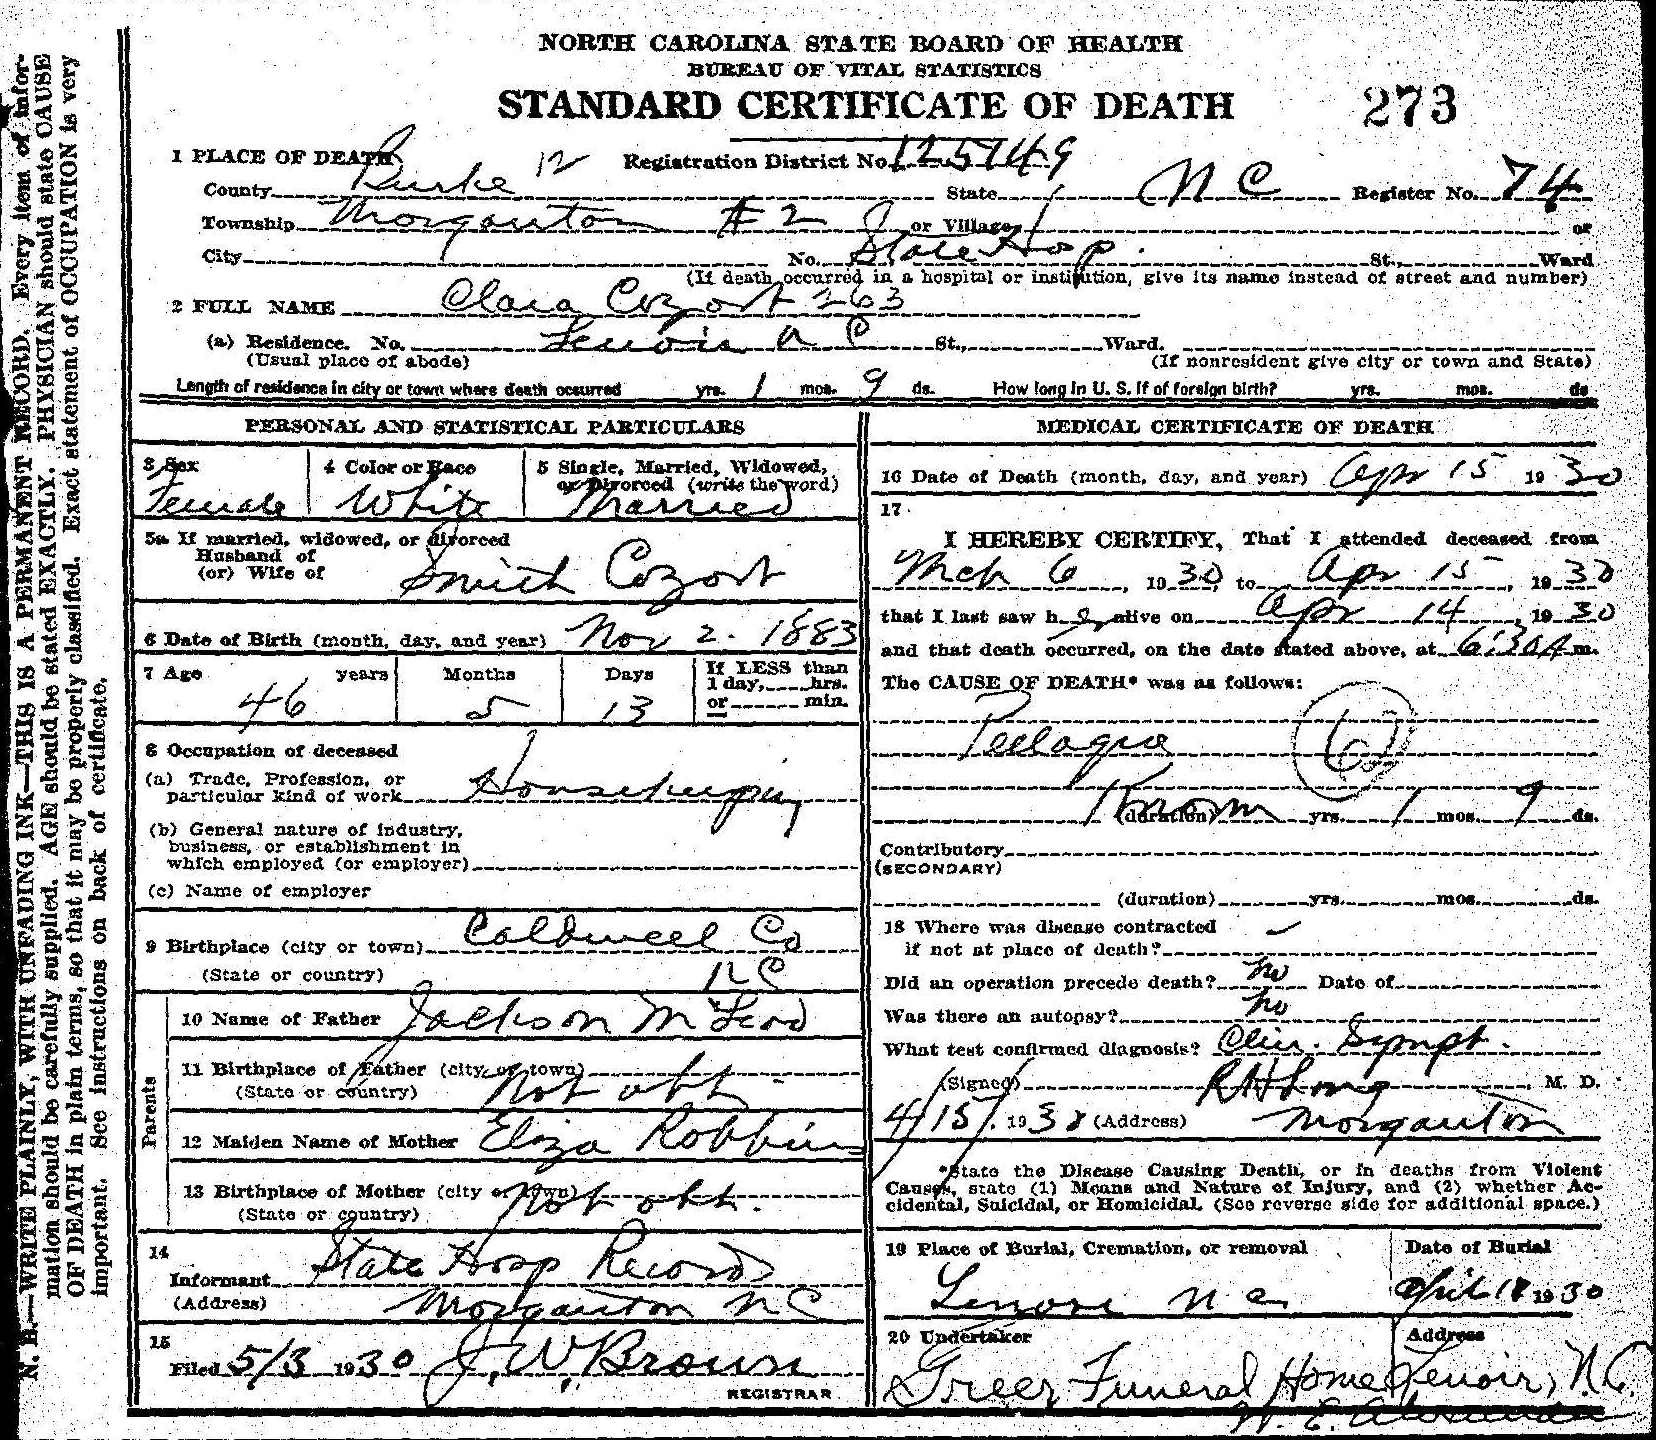 NORTH CAROLINA STATE BOARD OF HEALTH
BUREAU OF VITAL STATISTICS
STANDARD CERTIFICATE OF DEATH 273
1 PLACE OF DEATH 12 Registration District No. 125749
County Burke State N C Register No. 74
Township Morganton #2 or Village or
City No. State Hosp. St., Ward
(If death occurred in a hospital or institution, give its name instead of street and number)
2 FULL NAME Clara Cozort 263
(a) Residence. No. Lenoir N C St., Ward.
(Usual place of abode) (If nonresident give city or town and State)
Length of residence in city or town where death occurred yrs. 1 mos. 9 ds. How long in U. S. if of foreign birth? yrs. mos. ds
PERSONAL AND STATISTICAL PARTICULARS
3 Sex 4 Color or Race 5 Single, Married, Widowed,
or Divorced (write the word)
Female White Married
5a If married, widowed, or divorced
Husband of
(or) Wife of Smith Cozort
6 Date of Birth (month, day, and year) Nov 2. 1883
7 Age years Months Days If LESS than
1 day, hrs.
46 5 13 or min.
8 Occupation of deceased
(a) Trade, Profession, or
particular kind of work Housekeeping
(b) General nature of industry,
business, or establishment in
which employed (or employer)
(c) Name of employer
9 Birthplace (city or town) Caldwell Co
(State or country) N C
Parents
10 Name of Father Jackson McLeod
11 Birthplace of Father (city or town)
(State or country) Not obt.
12 Maiden Name of Mother Eliza Robbins
13 Birthplace of Mother (city or town)
(State or country) Not obt.
14
Informant State Hosp Records
(Address) Morganton N C
15
Filed 5/3 1930 J. W. Brown
REGISTRAR
MEDICAL CERTIFICATE OF DEATH
16 Date of Death (month, day, and year) Apr 15 1930
17
I HEREBY CERTIFY, That I attended deceased from
Mch 6, 1930, to Apr 15, 1930
that I last saw her alive on Apr 14, 1930
and that death occurred, on the date stated above, at 6:30A m.
The CAUSE OF DEATH* was as follows:
Pellagra
Known (duration) yrs. 1 mos. 9 ds.
Contributory
(SECONDARY)
(duration) yrs. mos. ds.
18 Where was disease contracted
if not at place of death?
Did an operation precede death? No Date of
Was there an autopsy? No
What test confirmed diagnosis? Clin. Sympt.
(Signed) R H Long, M. D.
4/15/, 1930 (Address) Morganton
*State the Disease Causing Death, or in deaths from Violent
Causes, state (1) Means and Nature of Injury, and (2) whether Ac-
cidental, Suicidal, or Homicidal. (See reverse side for additional space.)
19 Place of Burial, Cremation, or removal Date of Burial
Lenoir N C April 17 1930
20 Undertaker Address
Greer Funeral Home Lenoir, N.C.
W. E.
N. B.—WRITE PLAINLY, WITH UNFADING INK—THIS IS A PERMANENT RECORD. Every item of infor-
mation should be carefully supplied. AGE should be stated EXACTLY. PHYSICIAN should state CAUSE
OF DEATH in plain terms, so that it may be properly classified. Exact statement of OCCUPATION is very
important. See instructions on back of certificate.